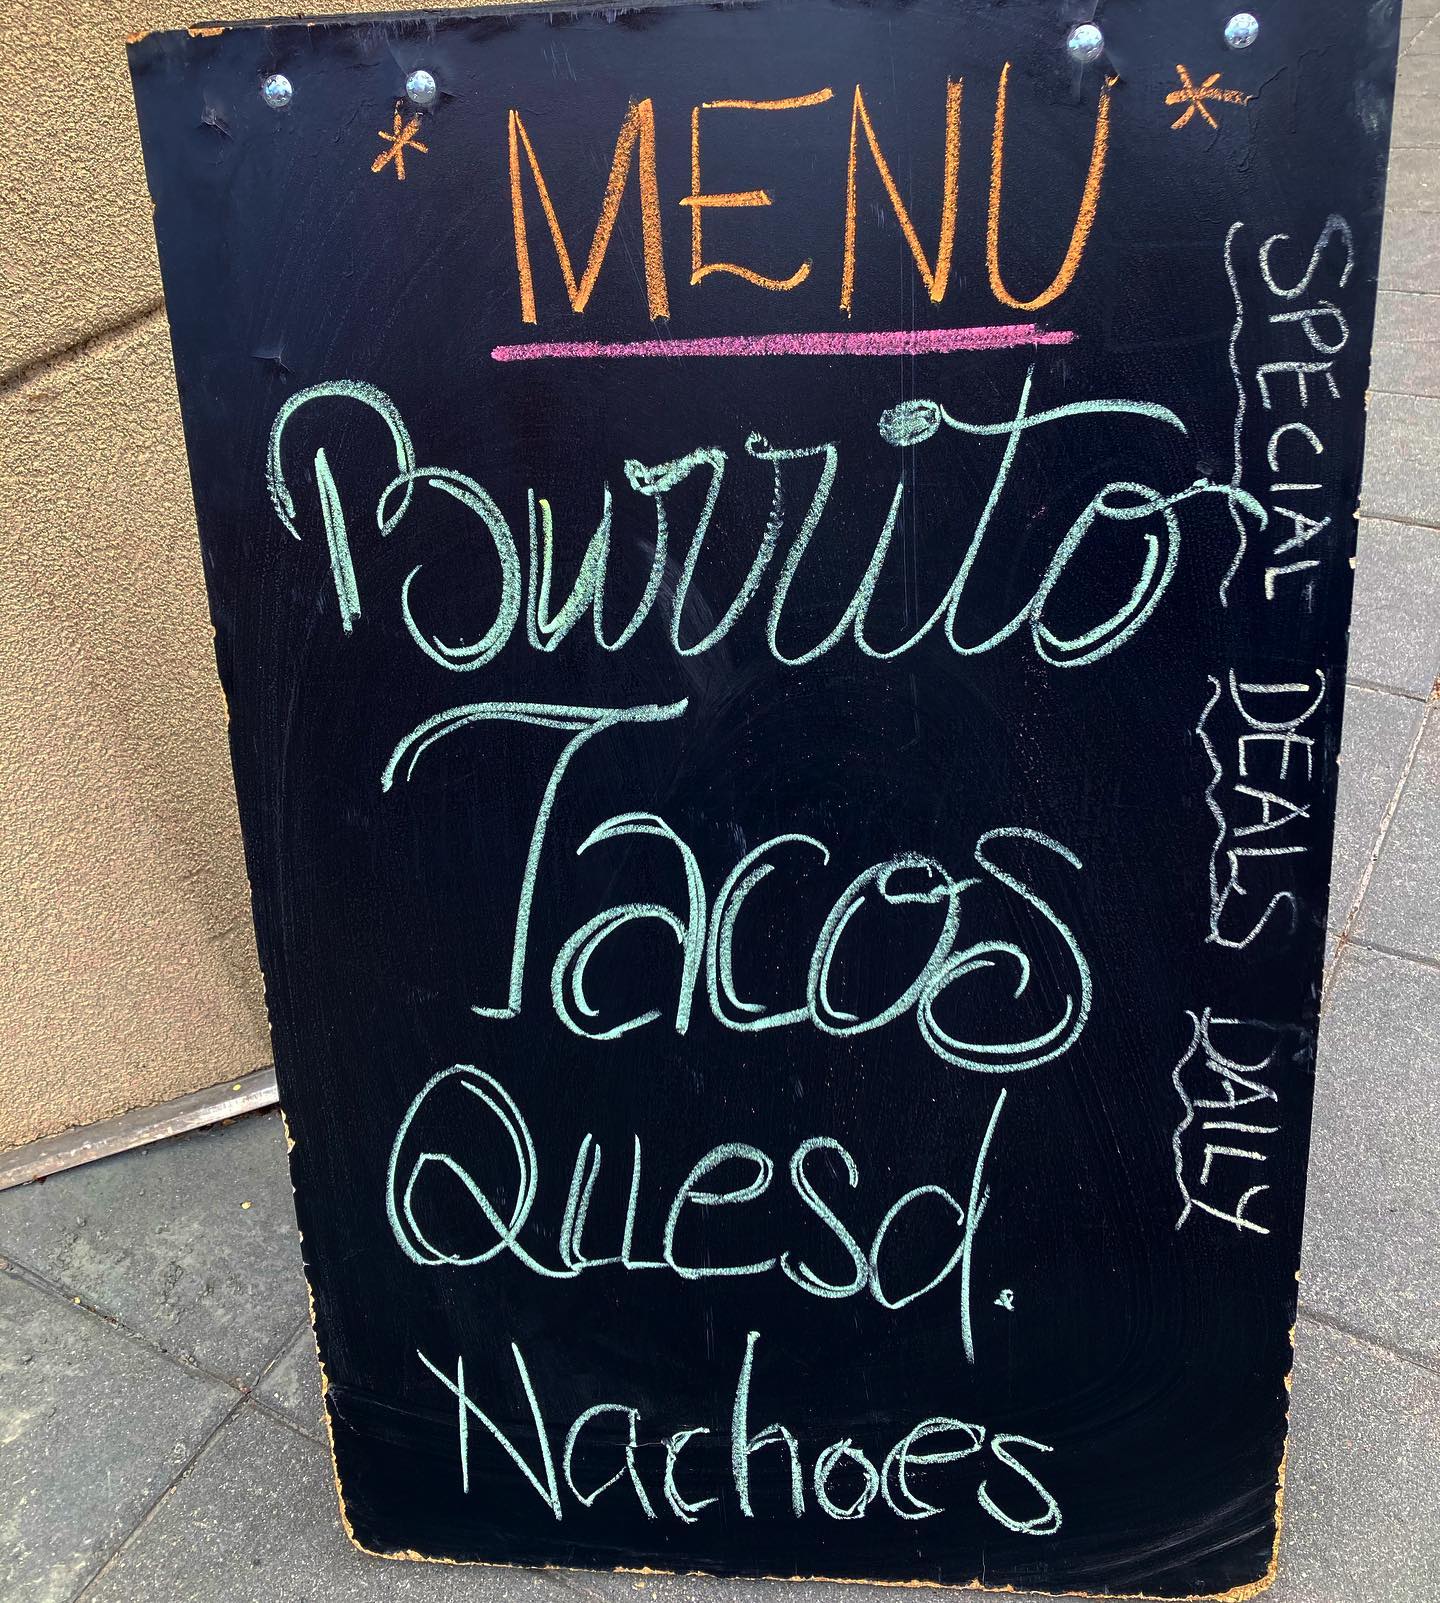 * MENU *
Burrito
Tacos
Quesd.
Nachoes
SPECIAL DEALS DAILY